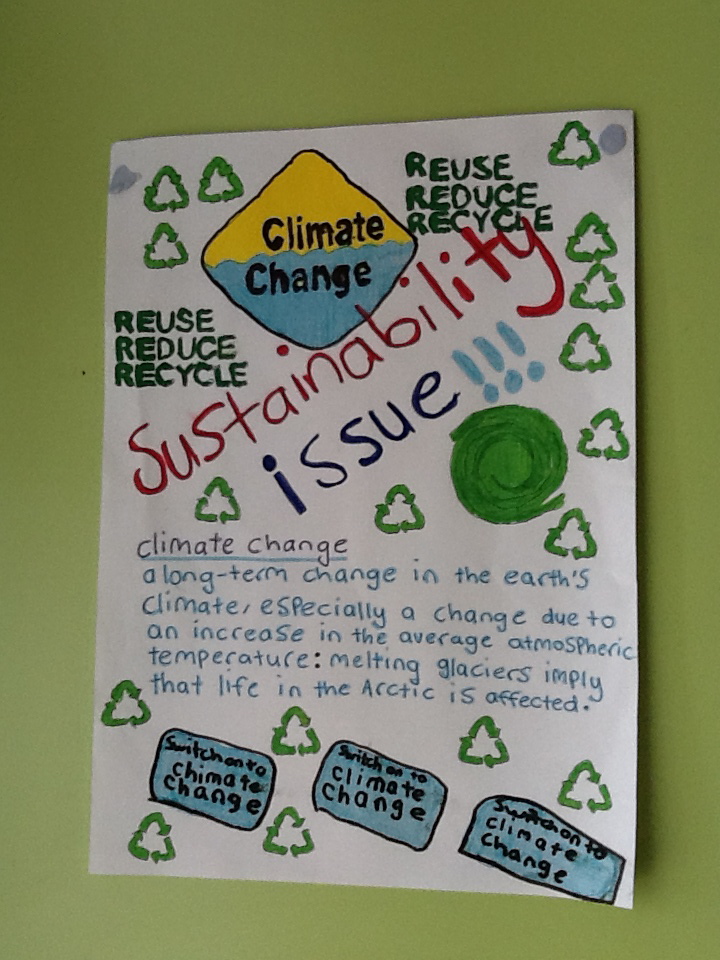 Climate
Change
REUSE
REDUCE
RECYCLE
REUSE
REDUCE
RECYCLE
Sustainability
issue!!!
climate change
a long-term change in the earth's
climate, especially a change due to
an increase in the average atmospheric
temperature: melting glaciers imply
that life in the Arctic is affected.
Switch on to
Chimate
Change
Switch on to
Climate
Change
Switch on to
climate
Change